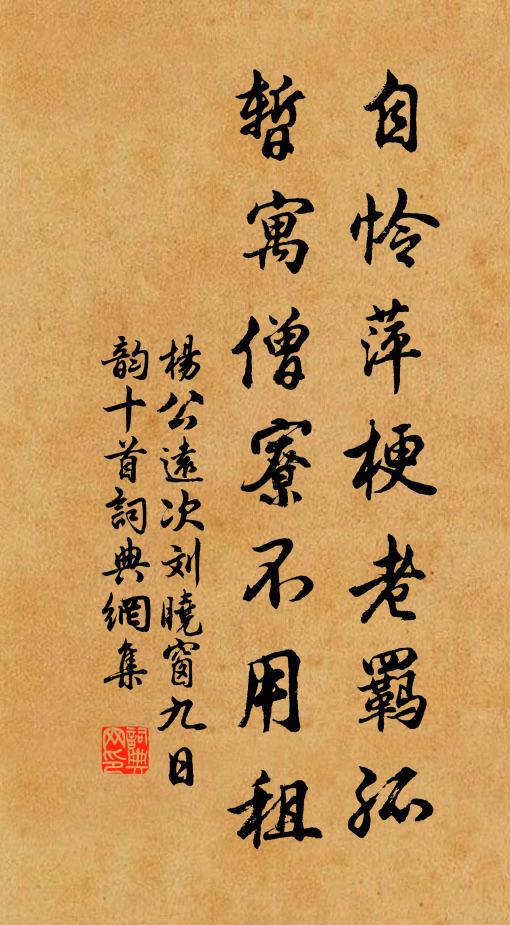 自怜萍梗老羁孤
暂寓僧寮不用租
楊公遠次刘曉窗九日
韵十首詞典網集
詞典
网印